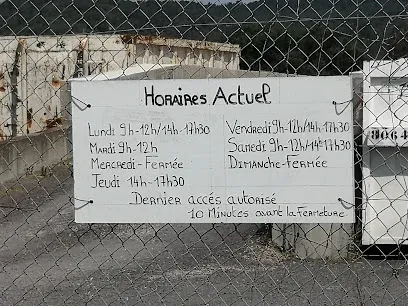 Horaires Actuel
Lundi 9h-12h/14h-17h30
Mardi 9h-12h
Mercredi-Fermée
Jeudi 14h-17h30
Vendredi 9h-12h/14h-17h30
Samedi 9h-12h/14h-17h30
Dimanche-Fermée
Dernier accés autorisé
10 Minutes avant la Fermeture